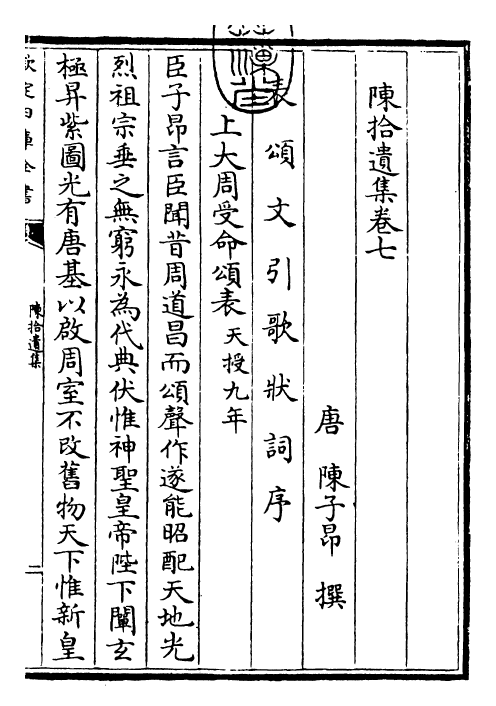 陳拾遺集卷七
唐 陳子昂 撰
表 頌 文 引 歌 狀 詞 序
上大周受命頌表 天授九年
臣子昂言臣聞昔周道昌而頌聲作遂能昭配天地光
烈祖宗垂之無窮永為代典伏惟神聖皇帝陛下闡玄
極昇紫圖光有唐基以啟周室不改舊物天下惟新皇
陳拾遺集